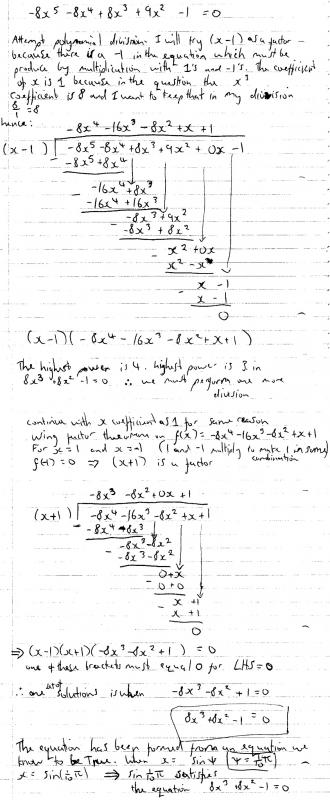 -8x⁵ -8x⁴ + 8x³ + 9x² -1 = 0
Attempt polynomial division. I will try (x-1) as a factor -
because there is a -1 in the equation which must be
produce by multiplication with 1's and -1's. The coefficient
of x is 1 because in the question the x³
coefficient is 8 and I want to keep that in my division
8/1 = 8
hence:
-8x⁴ -16x³ -8x² + x + 1
(x-1) -8x⁵ -8x⁴ + 8x³ + 9x² + 0x -1
-8x⁵ + 8x⁴
-16x⁴ + 8x³
-16x⁴ + 16x³
-8x³ + 9x²
-8x³ + 8x²
- x² + 0x
x² - x
- x -1
x -1
0
(x-1)(-8x⁴ -16x³ -8x² + x + 1)
The highest power is 4. highest power is 3 in
8x³ + 8x² -1 = 0 ∴ we must perform one more
division
continue with x coefficient as 1 for same reason
using factor theorem on f(x) = -8x⁴ -16x³ -8x² + x + 1
For x = 1 and x = -1 (1 and -1 multiply to make 1 in some)
combination
f(-1) = 0 ⇒ (x+1) is a factor
-8x³ -8x² + 0x + 1
(x+1) -8x⁴ -16x³ -8x² + x + 1
-8x⁴ -8x³
-8x³ -8x²
-8x³ -8x²
0 + x
- 0 + 0
- x + 1
x + 1
0
⇒ (x-1)(x+1)(-8x³ -8x² + 1) = 0
one of these brackets must equal 0 for LHS = 0
∴ one set of solutions is when -8x³ -8x² + 1 = 0
8x³ + 8x² -1 = 0
The equation has been formed from an equation we
know to be True. When x = sin ψ ψ = 1/10 π
x = sin(1/10 π) ⇒ sin 1/10 π satisfies
the equation 8x³ + 8x² -1 = 0